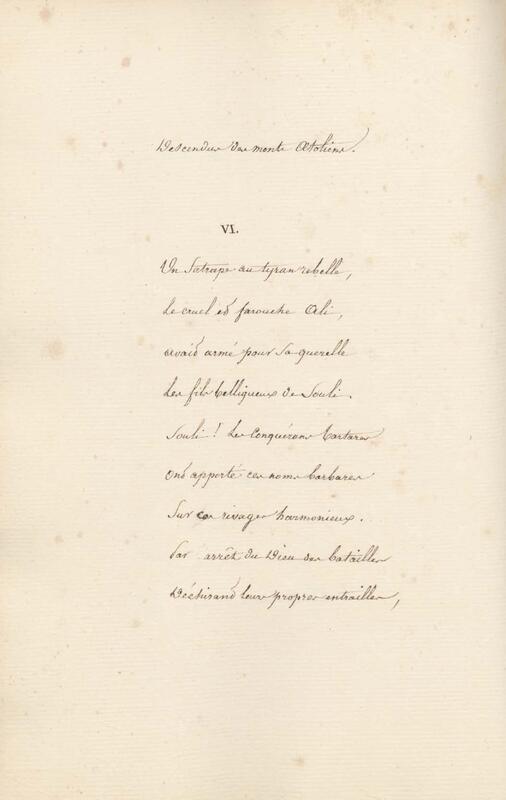 Descendus des monts Ætoliens.
VI.
Un Satrape au tyran rebelle,
Le cruel et farouche Ali,
avait armé pour sa querelle
Les fils belliqueux de Souli.
Souli ! Les Conquérans tartares
Ont apporté ces noms barbares
Sur ces rivages harmonieux.
Par arrêt du Dieu des batailles
Déchirant leurs propres entrailles,